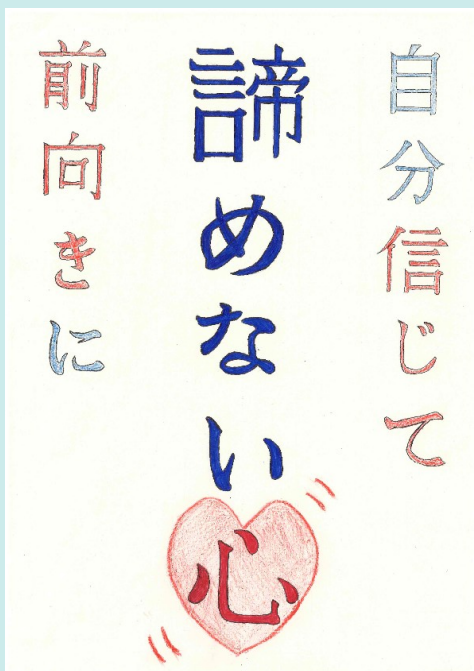 自分信じて
諦めない心
前向きに